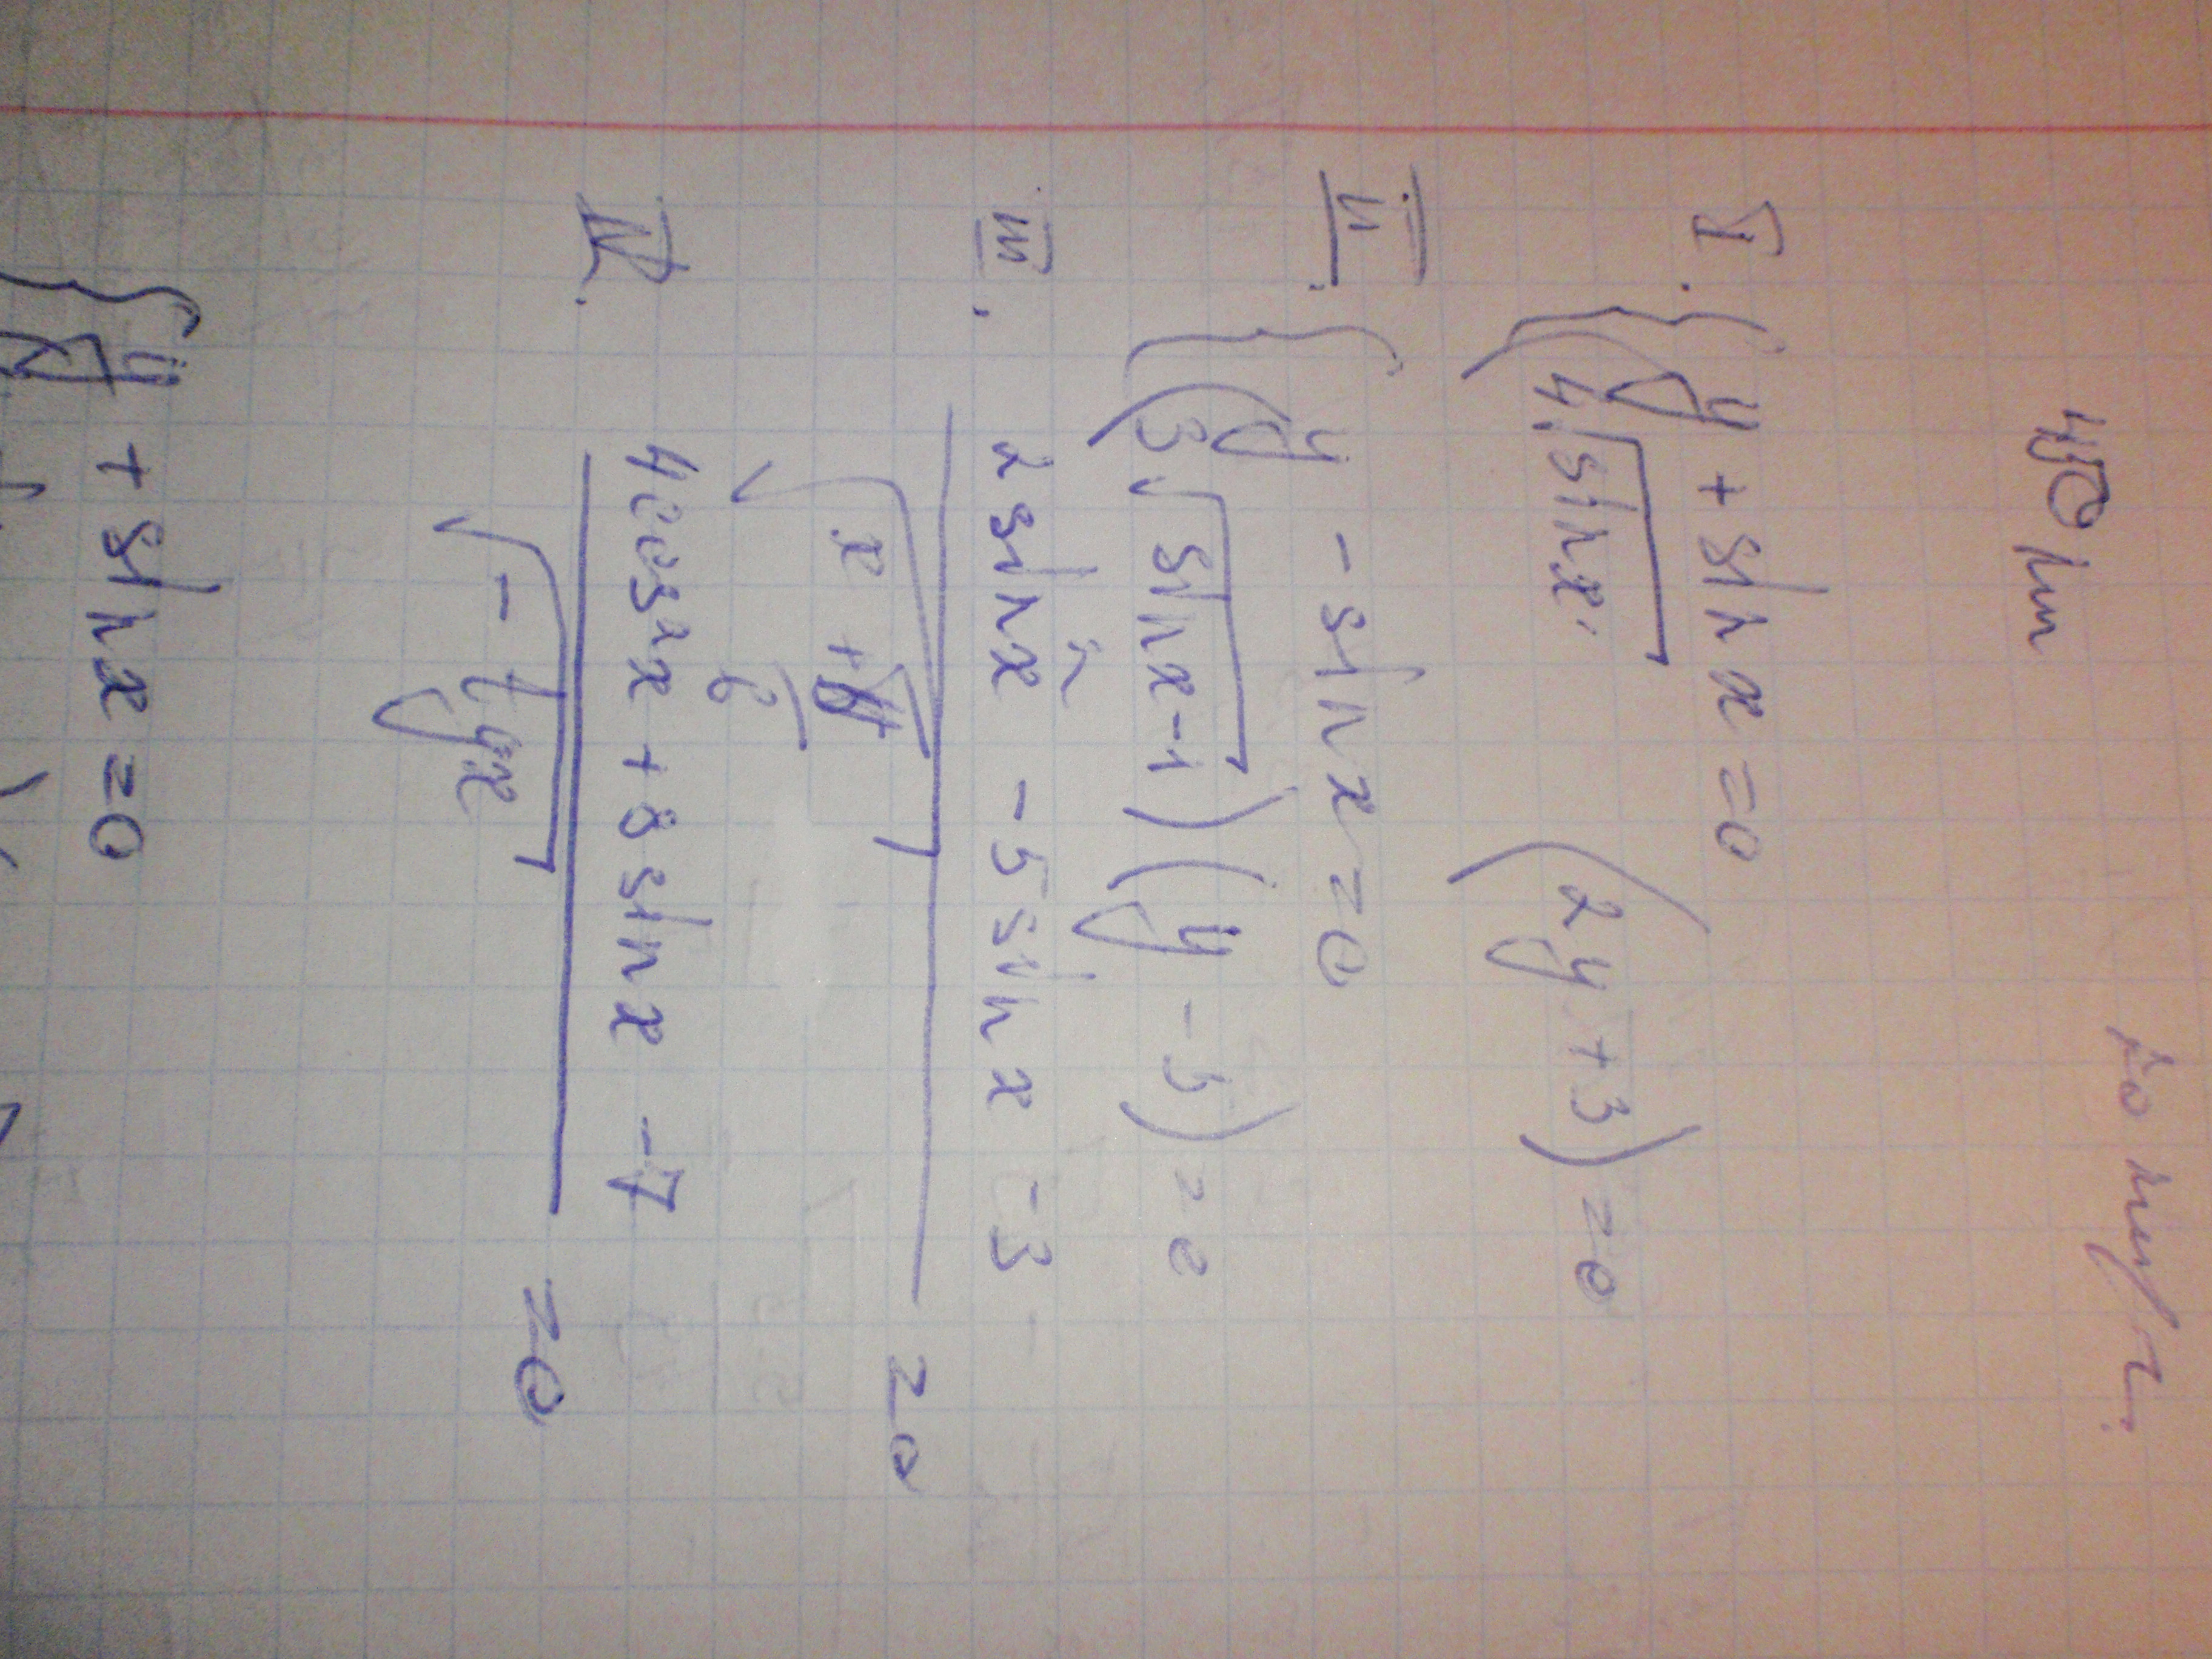 I. { y + sin x = 0
(4√sin x (2y + 3) = 0
II. { y - sin x = 0
(3√sin x - 1) (y - 5) = 0
III. 2 sin² x - 5 sin x - 3
√x + π/6 = 0
IV. 4 cos x + 8 sin x - 7
√-tg x = 0
{ y + sin x = 0